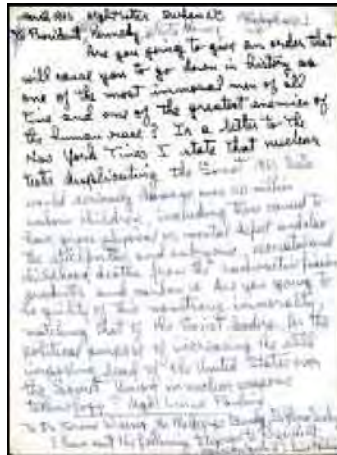 President Kennedy
Are you going to give an order that
will cause you to go down in history as
one of the most immoral men of all
time and one of the greatest enemies of
the human race? In a letter to the
New York Times I state that nuclear
tests duplicating the Soviet 1961 tests
would seriously damage over 20 million
unborn children, including those caused to
have gross physical or mental defect and also
the stillbirths and embryonic, neonatal and
childhood deaths from the radioactive fission
products and carbon 14. Are you going to
be guilty of this monstrous immorality,
matching that of the Soviet leaders, for the
political purpose of increasing the still
imposing lead of the United States over
the Soviet Union in nuclear weapons
technology?
To Dr. Jerome Wiesner, McGeorge Bundy,
I have sent the following telegram to President